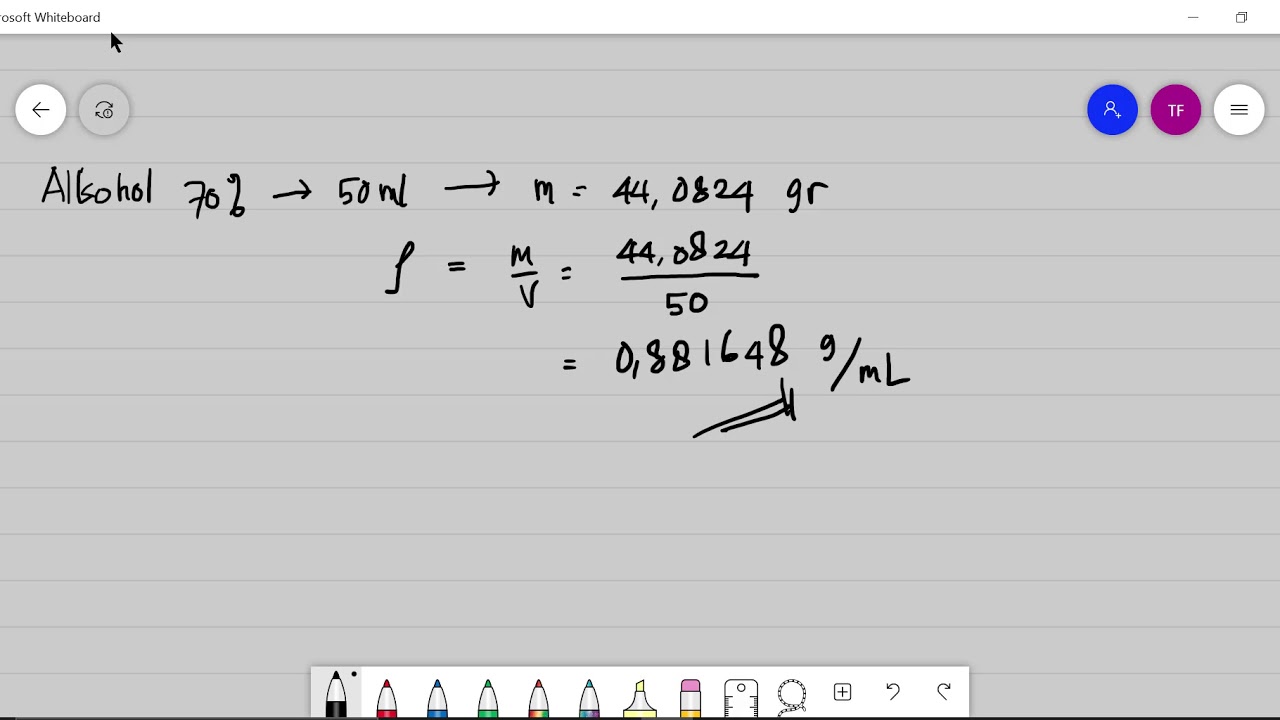 rosoft Whiteboard
TF
Alkohol 70% → 50 ml → m = 44,0824 gr
ρ = m/V = 44,0824/50
= 0,881648 g/mL